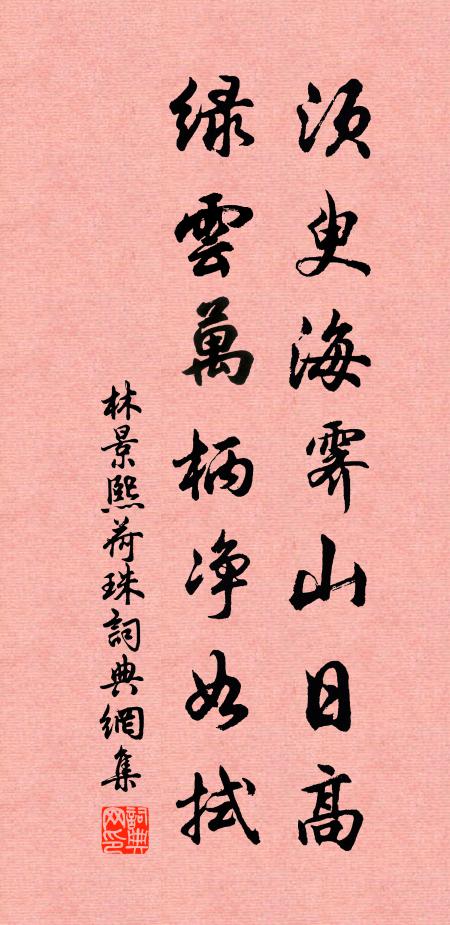 須臾海霽山日高
綠雲萬柄净如拭
林景熙荷珠詞典網集
詞典網印